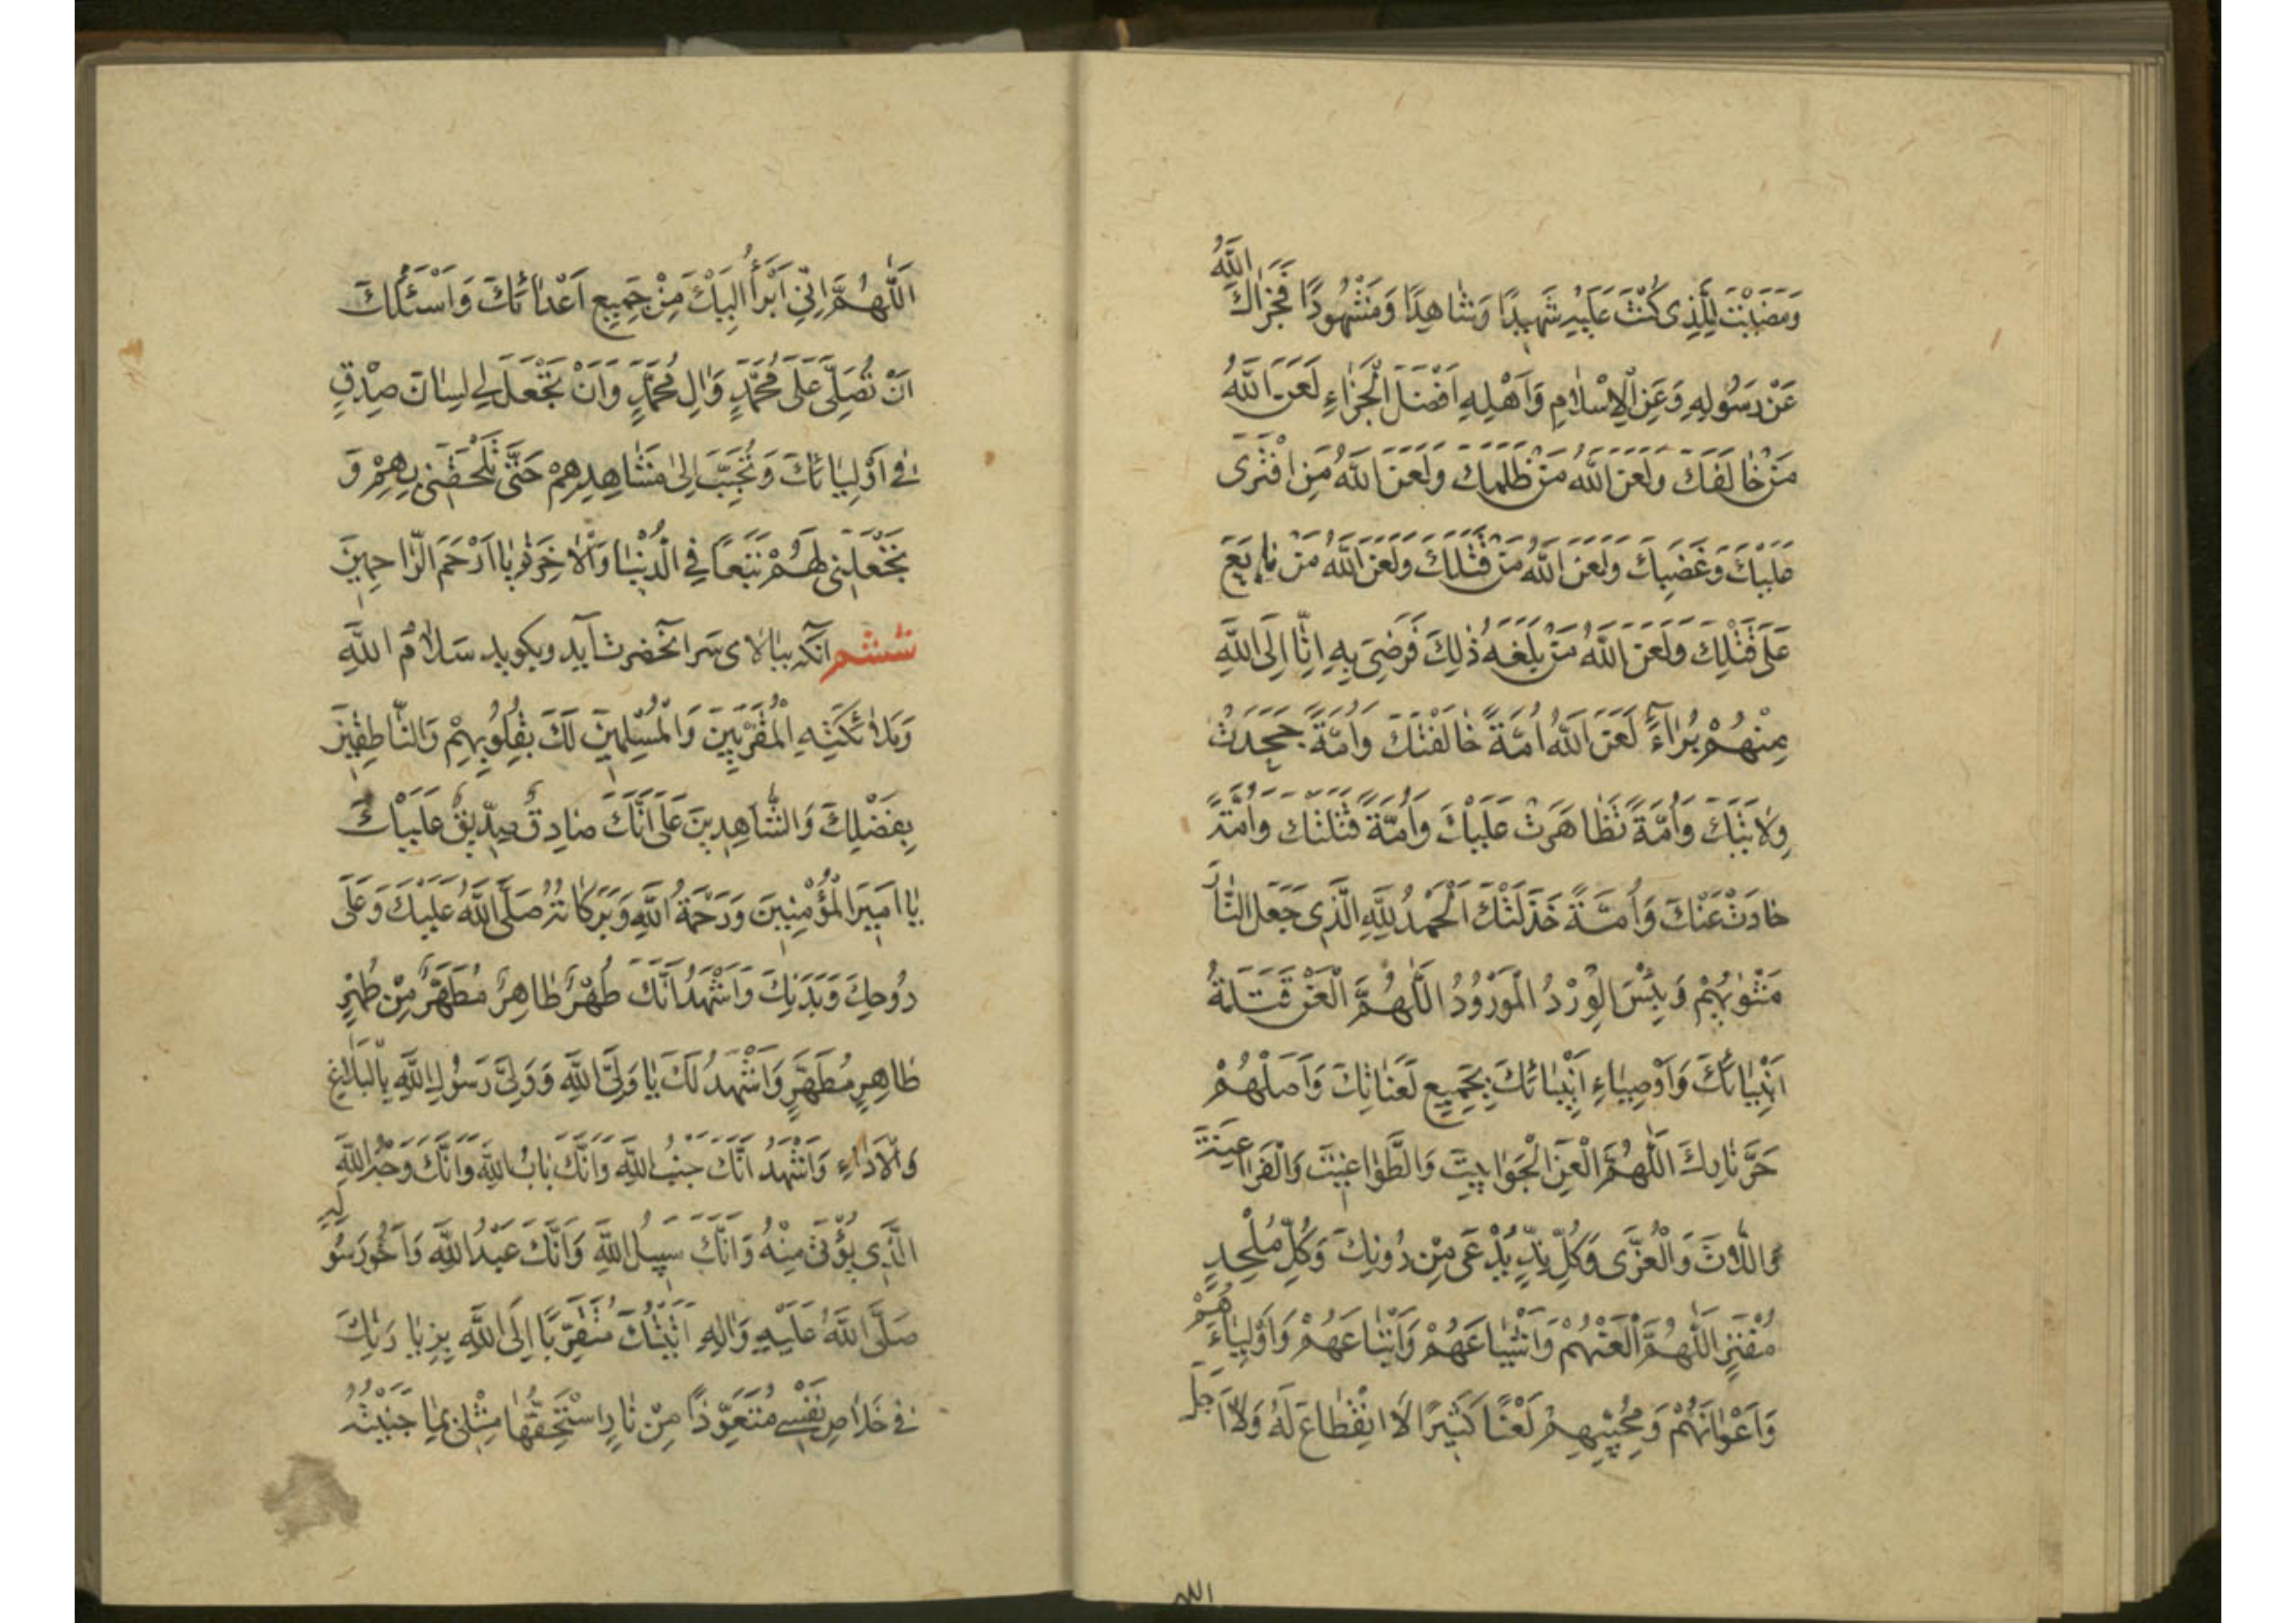 وَمَضَيْتَ لِلَّذِى كُنْتَ عَلَيْهِ شَهِيدًا وَشَاهِدًا وَمَشْهُودًا فَجَزَاكَ اللَّهُ
عَنْ رَسُولِهِ وَعَنِ الْاِسْلَامِ وَاَهْلِهِ اَفْضَلَ الْجَزَاءِ لَعَنَ اللَّهُ
مَنْ خَالَفَكَ وَلَعَنَ اللَّهُ مَنْ ظَلَمَكَ وَلَعَنَ اللَّهُ مَنِ افْتَرَى
عَلَيْكَ وَغَصَبَكَ وَلَعَنَ اللَّهُ مَنْ قَتَلَكَ وَلَعَنَ اللَّهُ مَنْ بَايَعَ
عَلَى قَتْلِكَ وَلَعَنَ اللَّهُ مَنْ بَلَغَهُ ذٰلِكَ فَرَضِىَ بِهِ اِنَّا اِلَى اللَّهِ
مِنْهُمْ بُرَآءُ لَعَنَ اللَّهُ اُمَّةً خَالَفَتْكَ وَاُمَّةً جَحَدَتْ
وِلَايَتَكَ وَاُمَّةً تَظَاهَرَتْ عَلَيْكَ وَاُمَّةً قَتَلَتْكَ وَاُمَّةً
حَادَتْ عَنْكَ وَاُمَّةً خَذَلَتْكَ اَلْحَمْدُ لِلَّهِ الَّذِى جَعَلَ النَّارَ
مَثْوٰيهُمْ وَبِئْسَ الْوِرْدُ الْمَوْرُودُ اَللّٰهُمَّ الْعَنْ قَتَلَةَ
اَنْبِيَائِكَ وَاَوْصِيَاءِ اَنْبِيَائِكَ بِجَمِيعِ لَعَنَاتِكَ وَاَصْلِهِمْ
حَرَّ نَارِكَ اَللّٰهُمَّ الْعَنِ الْجَوَابِيتَ وَالطَّوَاغِيتَ وَالْفَرَاعِنَةَ
وَاللَّاتَ وَالْعُزَّى وَكُلَّ نِدٍّ يُدْعَى مِنْ دُونِكَ وَكُلَّ مُلْحِدٍ
مُفْتَرٍ اَللّٰهُمَّ الْعَنْهُمْ وَاَشْيَاعَهُمْ وَاَتْبَاعَهُمْ وَاَوْلِيَاءَهُمْ
وَاَعْوَانَهُمْ وَمُحِبِّيهِمْ لَعْنًا كَثِيرًا لَا انْقِطَاعَ لَهُ وَلَا اَجَلَ
اللهم
اَللّٰهُمَّ اِنِّى اَبْرَأُ اِلَيْكَ مِنْ جَمِيعِ اَعْدَائِكَ وَاَسْئَلُكَ
اَنْ تُصَلِّىَ عَلَى مُحَمَّدٍ وَاٰلِ مُحَمَّدٍ وَاَنْ تَجْعَلَ لِى لِسَانَ صِدْقٍ
فِى اَوْلِيَائِكَ وَتُحَبِّبَ اِلَىَّ مَشَاهِدِهِمْ حَتَّى تُلْحِقَنِى بِهِمْ وَ
تَجْعَلَنِى لَهُمْ تَبَعًا فِى الدُّنْيَا وَالْاٰخِرَةِ يَا اَرْحَمَ الرَّاحِمِينَ
ششم آنکه ببالای سر انحضرت آید وبکوید سَلَامُ اللَّهِ
وَمَلٰئِكَتِهِ الْمُقَرَّبِينَ وَالْمُسَلِّمِينَ لَكَ بِقُلُوبِهِمْ وَالنَّاطِقِينَ
بِفَضْلِكَ وَالشَّاهِدِينَ عَلَى اَنَّكَ صَادِقٌ صِدِّيقٌ عَلَيْكَ
يَا اَمِيرَ الْمُؤْمِنِينَ وَرَحْمَةُ اللَّهِ وَبَرَكَاتُهُ صَلَّى اللَّهُ عَلَيْكَ وَعَلَى
رُوحِكَ وَبَدَنِكَ وَاَشْهَدُ اَنَّكَ طُهْرٌ طَاهِرٌ مُطَهَّرٌ مِنْ طُهْرٍ
طَاهِرٍ مُطَهَّرٍ وَاَشْهَدُ لَكَ يَا وَلِىَّ اللَّهِ وَوَلِىَّ رَسُولِ اللَّهِ بِالْبَلَاغِ
وَالْاَدَاءِ وَاَشْهَدُ اَنَّكَ جَنْبُ اللَّهِ وَاَنَّكَ بَابُ اللَّهِ وَاَنَّكَ وَجْهُ اللَّهِ
الَّذِى يُؤْتَى مِنْهُ وَاَنَّكَ سَبِيلُ اللَّهِ وَاَنَّكَ عَبْدُ اللَّهِ وَاَخُو رَسُولِهِ
صَلَّى اللَّهُ عَلَيْهِ وَاٰلِهِ اَتَيْتُكَ مُتَقَرِّبًا اِلَى اللَّهِ بِزِيَارَتِكَ
فِى خَلَاصِ نَفْسِى مُتَعَوِّذًا مِنْ نَارٍ اسْتَحَقَّهَا مِثْلِى بِمَا جَنَيْتُهُ